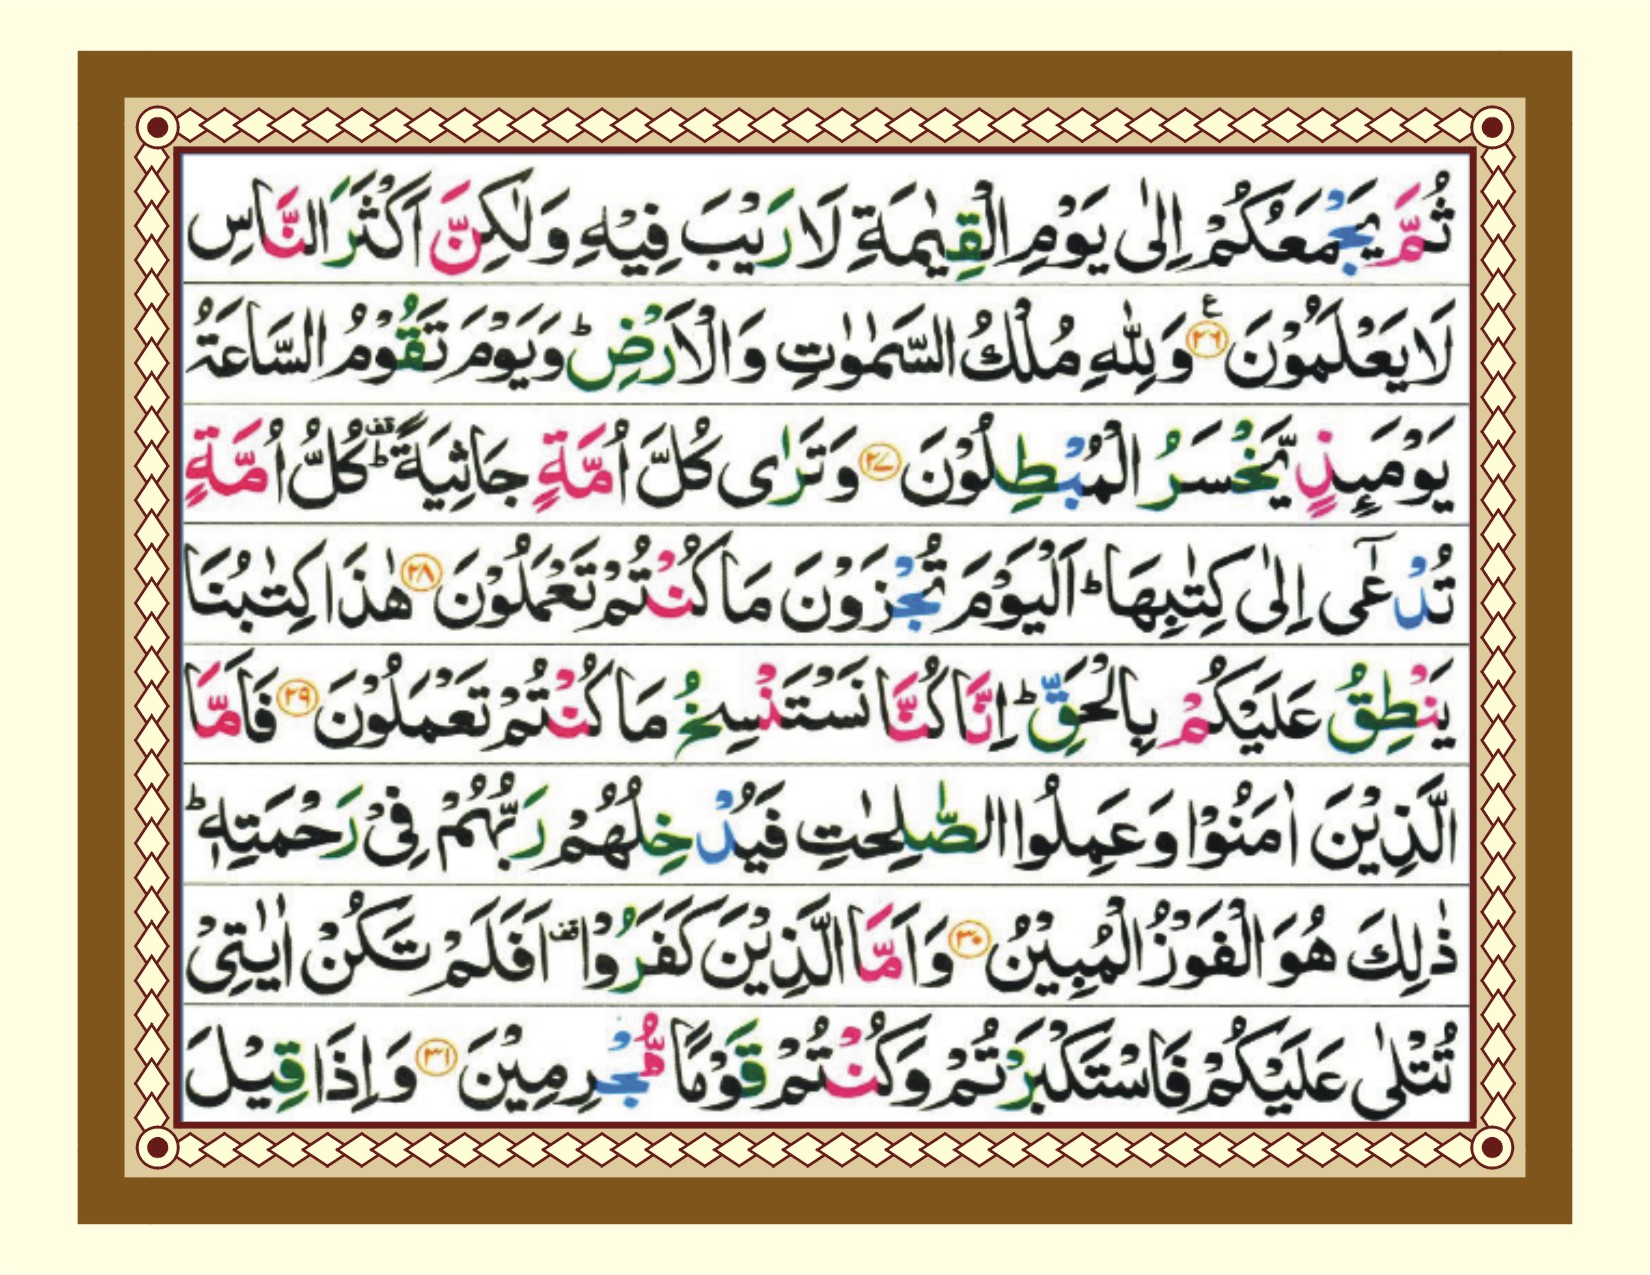 ثُمَّ يَجْمَعُكُمْ اِلٰى يَوْمِ الْقِيٰمَةِ لَا رَيْبَ فِيْهِ وَلٰكِنَّ اَكْثَرَ النَّاسِ
لَا يَعْلَمُوْنَ ﴿۲۶﴾ ع وَلِلّٰهِ مُلْكُ السَّمٰوٰتِ وَالْاَرْضِ ؕ وَيَوْمَ تَقُوْمُ السَّاعَةُ
يَوْمَىِٕذٍ يَّخْسَرُ الْمُبْطِلُوْنَ ﴿۲۷﴾ وَتَرٰى كُلَّ اُمَّةٍ جَاثِيَةً ؕ قف كُلُّ اُمَّةٍ
تُدْعٰۤى اِلٰى كِتٰبِهَا ؕ اَلْيَوْمَ تُجْزَوْنَ مَا كُنْتُمْ تَعْمَلُوْنَ ﴿۲۸﴾ هٰذَا كِتٰبُنَا
يَنْطِقُ عَلَيْكُمْ بِالْحَقِّ ؕ اِنَّا كُنَّا نَسْتَنْسِخُ مَا كُنْتُمْ تَعْمَلُوْنَ ﴿۲۹﴾ فَاَمَّا
الَّذِيْنَ اٰمَنُوْا وَعَمِلُوا الصّٰلِحٰتِ فَيُدْخِلُهُمْ رَبُّهُمْ فِىْ رَحْمَتِهٖ ؕ
ذٰلِكَ هُوَ الْفَوْزُ الْمُبِيْنُ ﴿۳۰﴾ وَاَمَّا الَّذِيْنَ كَفَرُوْا قف اَفَلَمْ تَكُنْ اٰيٰتِىْ
تُتْلٰى عَلَيْكُمْ فَاسْتَكْبَرْتُمْ وَكُنْتُمْ قَوْمًا مُّجْرِمِيْنَ ﴿۳۱﴾ وَاِذَا قِيْلَ